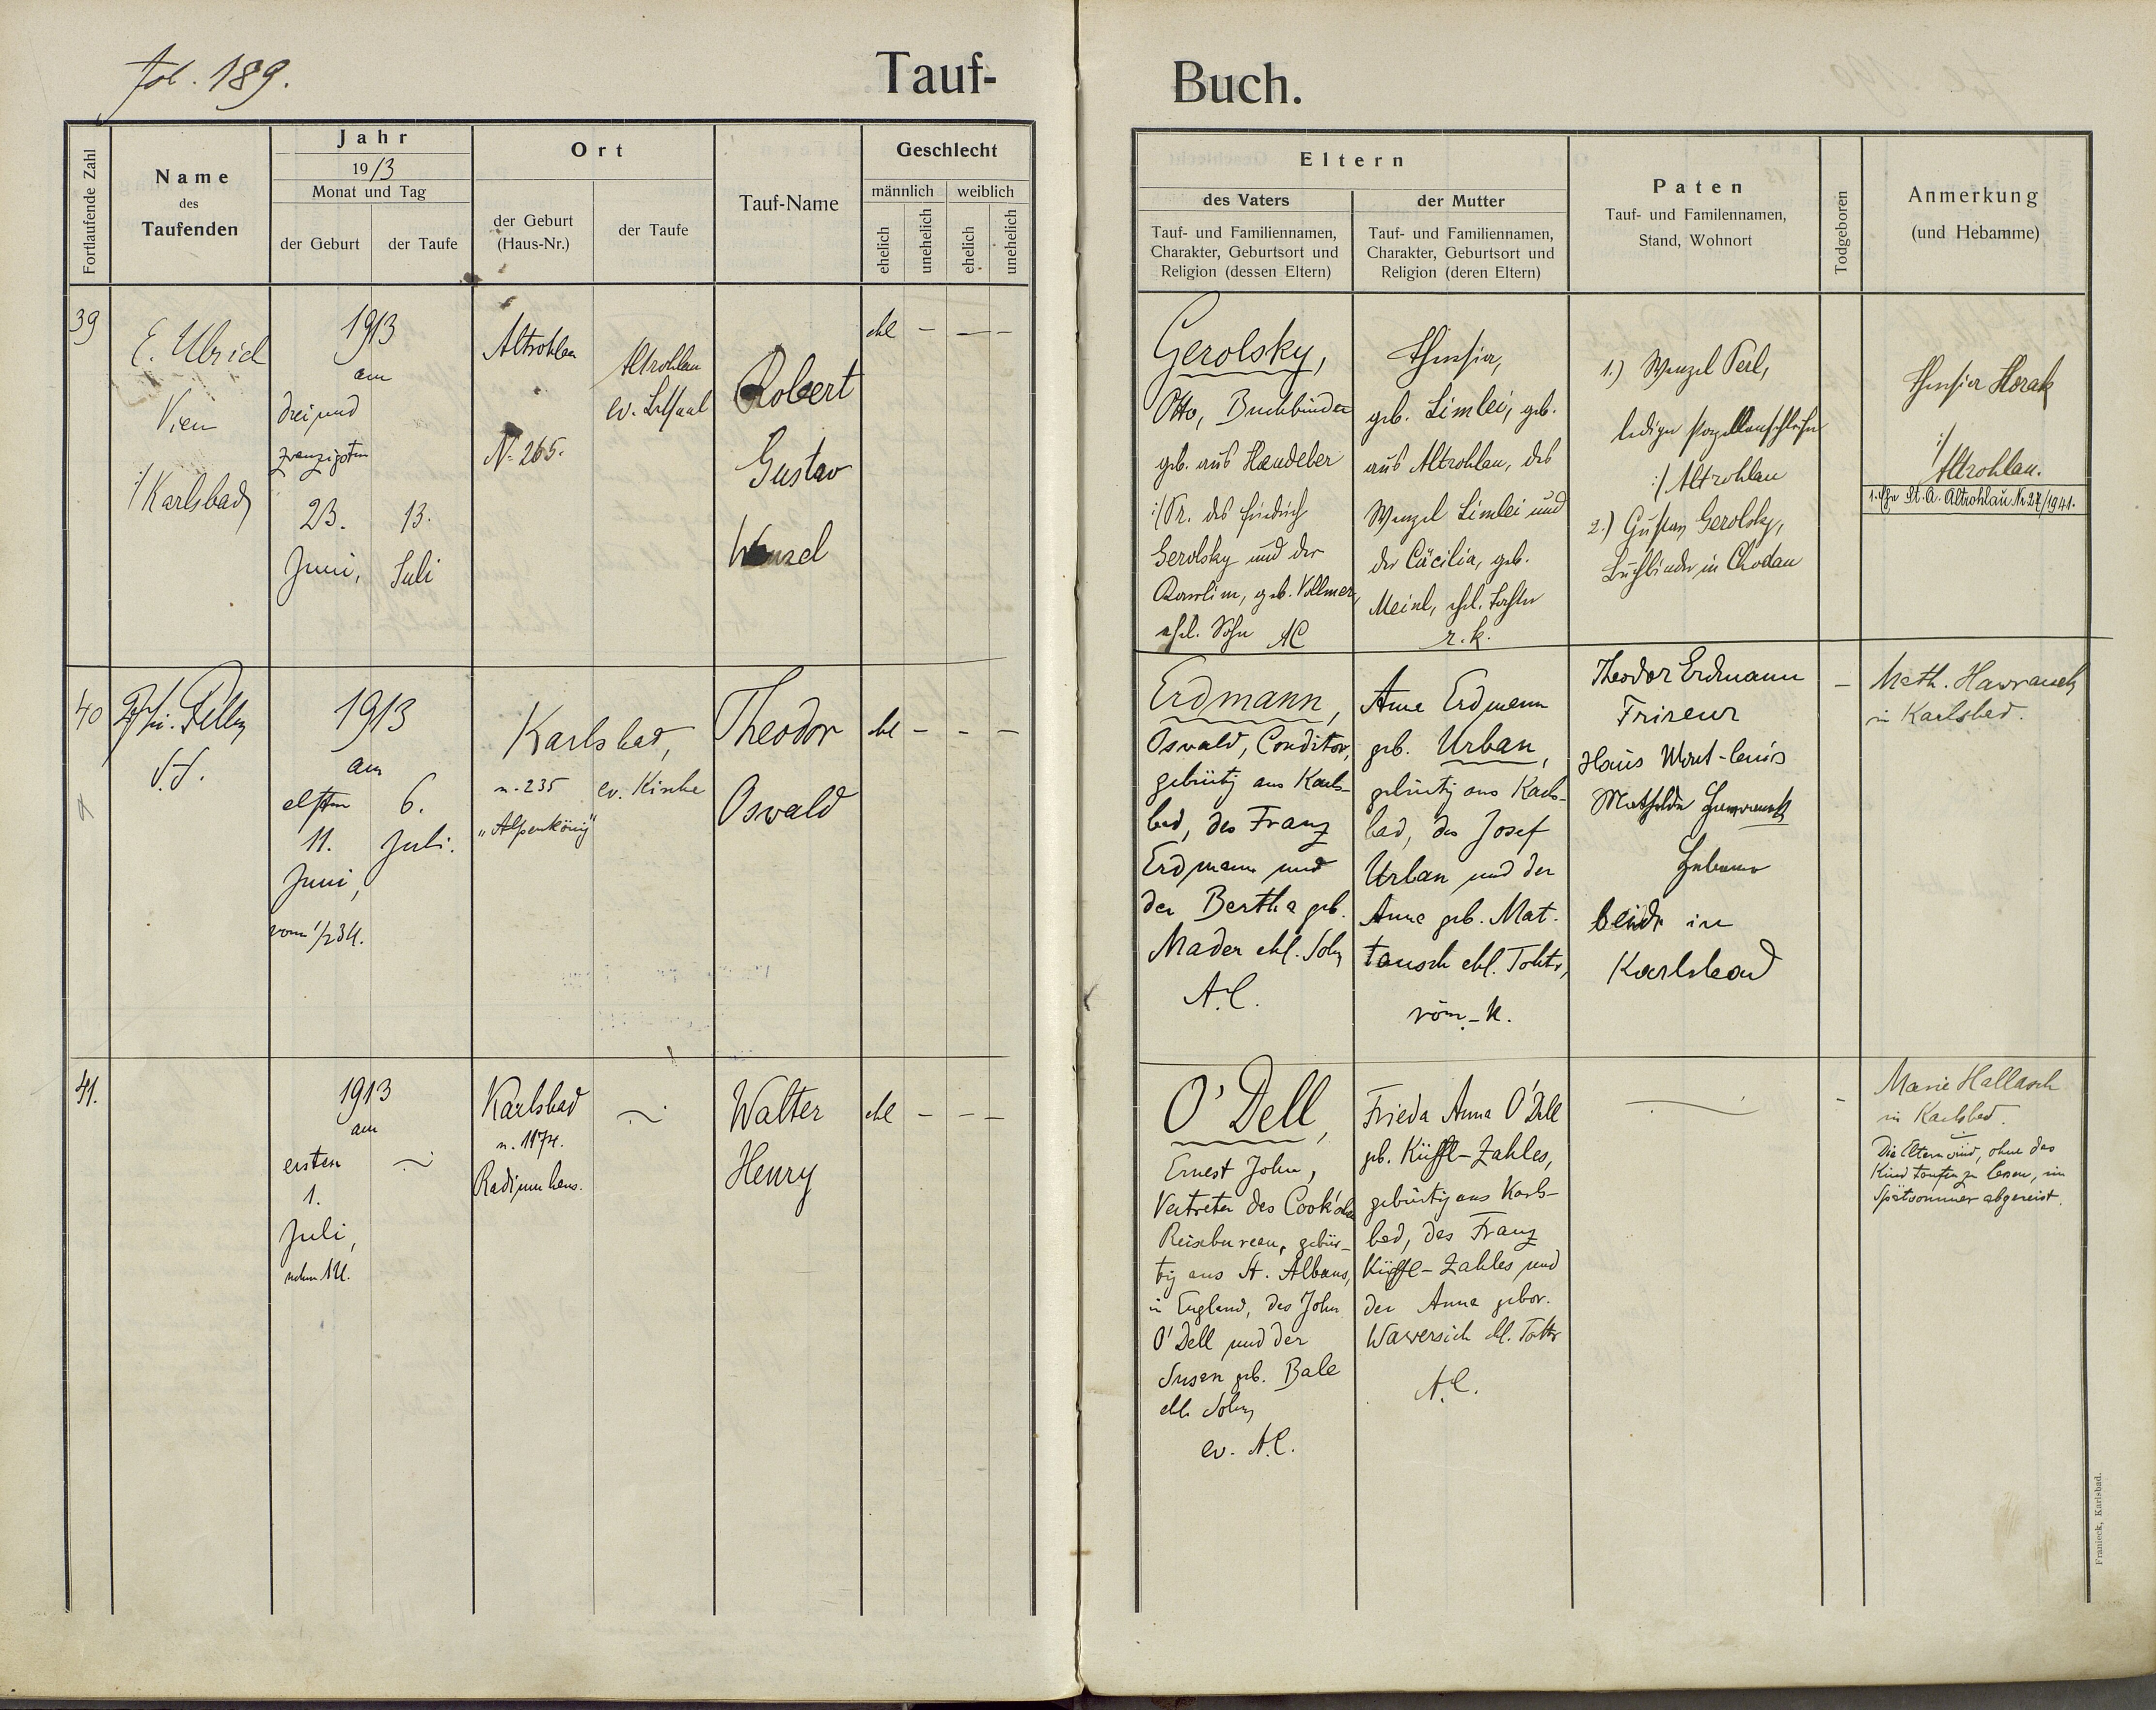 fol. 189.
Tauf-
Buch.
Fortlaufende Zahl
Name
des
Taufenden
Jahr
1913
Monat und Tag
der Geburt
der Taufe
Ort
der Geburt
(Haus-Nr.)
der Taufe
Tauf-Name
Geschlecht
männlich
weiblich
ehelich
unehelich
ehelich
unehelich
Eltern
des Vaters
Tauf- und Familiennamen,
Charakter, Geburtsort und
Religion (dessen Eltern)
der Mutter
Tauf- und Familiennamen,
Charakter, Geburtsort und
Religion (deren Eltern)
Paten
Tauf- und Familennamen,
Stand, Wohnort
Todgeboren
Anmerkung
(und Hebamme)
39
E. Ulrich
Karlsbad
1913
am
drei und
zwanzigsten
23.
Juni,
13.
Juli
Altrohlau
N. 265.
Altrohlau
ev. Betsaal
Robert
Gustav
Wenzel
ehl - - -
Gerolsky,
Otto, Buchbinder
geb. aus Haudeber
:/Pr. des Friedrich
Gerolsky und der
geb. Vollmer,
ehl. Sohn AC
Theresia,
geb. Limlei, geb.
aus Altrohlau, des
Wenzel Limlei und
der Cäcilia, geb.
Meinl, ehl. Tochter
r. k.
1.) Wenzel Perl,
lediger Porzellanschleifer
:/ Altrohlau
2.) Gustav Gerolsky,
Buchbinder in Chodau
Theresia Horak
:/
Altrohlau.
St. A. Altrohlau Nr. 27/1941.
40
1913
am
elften
11.
Juni,
vorm 1/2 3 U.
6.
Juli.
Karlsbad,
n. 235
"Alpenkönig"
ev. Kirche
Theodor
Oswald
ehl - - -
Erdmann,
Oswald, Conditor,
gebürtig aus Karls-
bad, des Franz
Erdmann und
der Bertha geb.
Mader ehl. Sohn
A.C.
Anna Erdmann
geb. Urban,
gebürtig aus Karls-
bad, des Josef
Urban und der
Anna geb. Mat-
tausch ehl. Tochter,
röm.-k.
Theodor Erdmann
Friseur
Mathilde Hawranek
Hebamme
beide in
Karlsbad
-
Math. Hawranek
in Karlsbad.
41.
1913
am
ersten
1.
Juli,
nchm. 1 U.
Karlsbad
n. 1174.
Radiumhaus.
Walter
Henry
ehl - - -
O'Dell,
Ernest John,
Vertreter des Cook'schen
Reisebureau, gebür-
tig aus St. Albans,
in England, des John
O'Dell und der
Susan geb. Bale
ehl. Sohn
ev. A.C.
Frieda Anna O'Dell
geb. Küffl-Zahles,
gebürtig aus Karls-
bad, des Franz
Küffl-Zahles und
der Anna gebor.
Wawersich ehl. Tochter
A.C.
-
Marie Hallasch
in Karlsbad.
Die Eltern sind, ohne das
Kind taufen zu lassen, im
Spätsommer abgereist.
Franieck, Karlsbad.